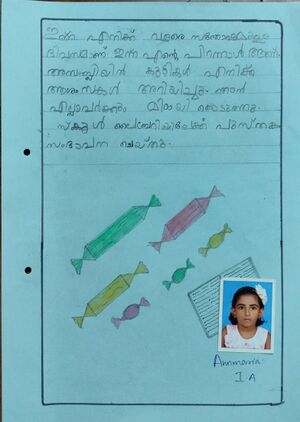 ഇന്ന് എനിക്ക് വളരെ സന്തോഷമുള്ള
ദിവസമാണ് ഇന്ന് എന്റെ പിറന്നാൾ ആണ്.
അസംബ്ലിയിൽ കുട്ടികൾ എനിക്ക്
ആശംസകൾ അറിയിച്ചു. ഞാൻ
എല്ലാവർക്കും മിഠായി കൊടുത്തു.
സ്കൂൾ ലൈബ്രറിയിലേക്ക് പുസ്തകം
സംഭാവന ചെയ്തു.
Annmaria
I A